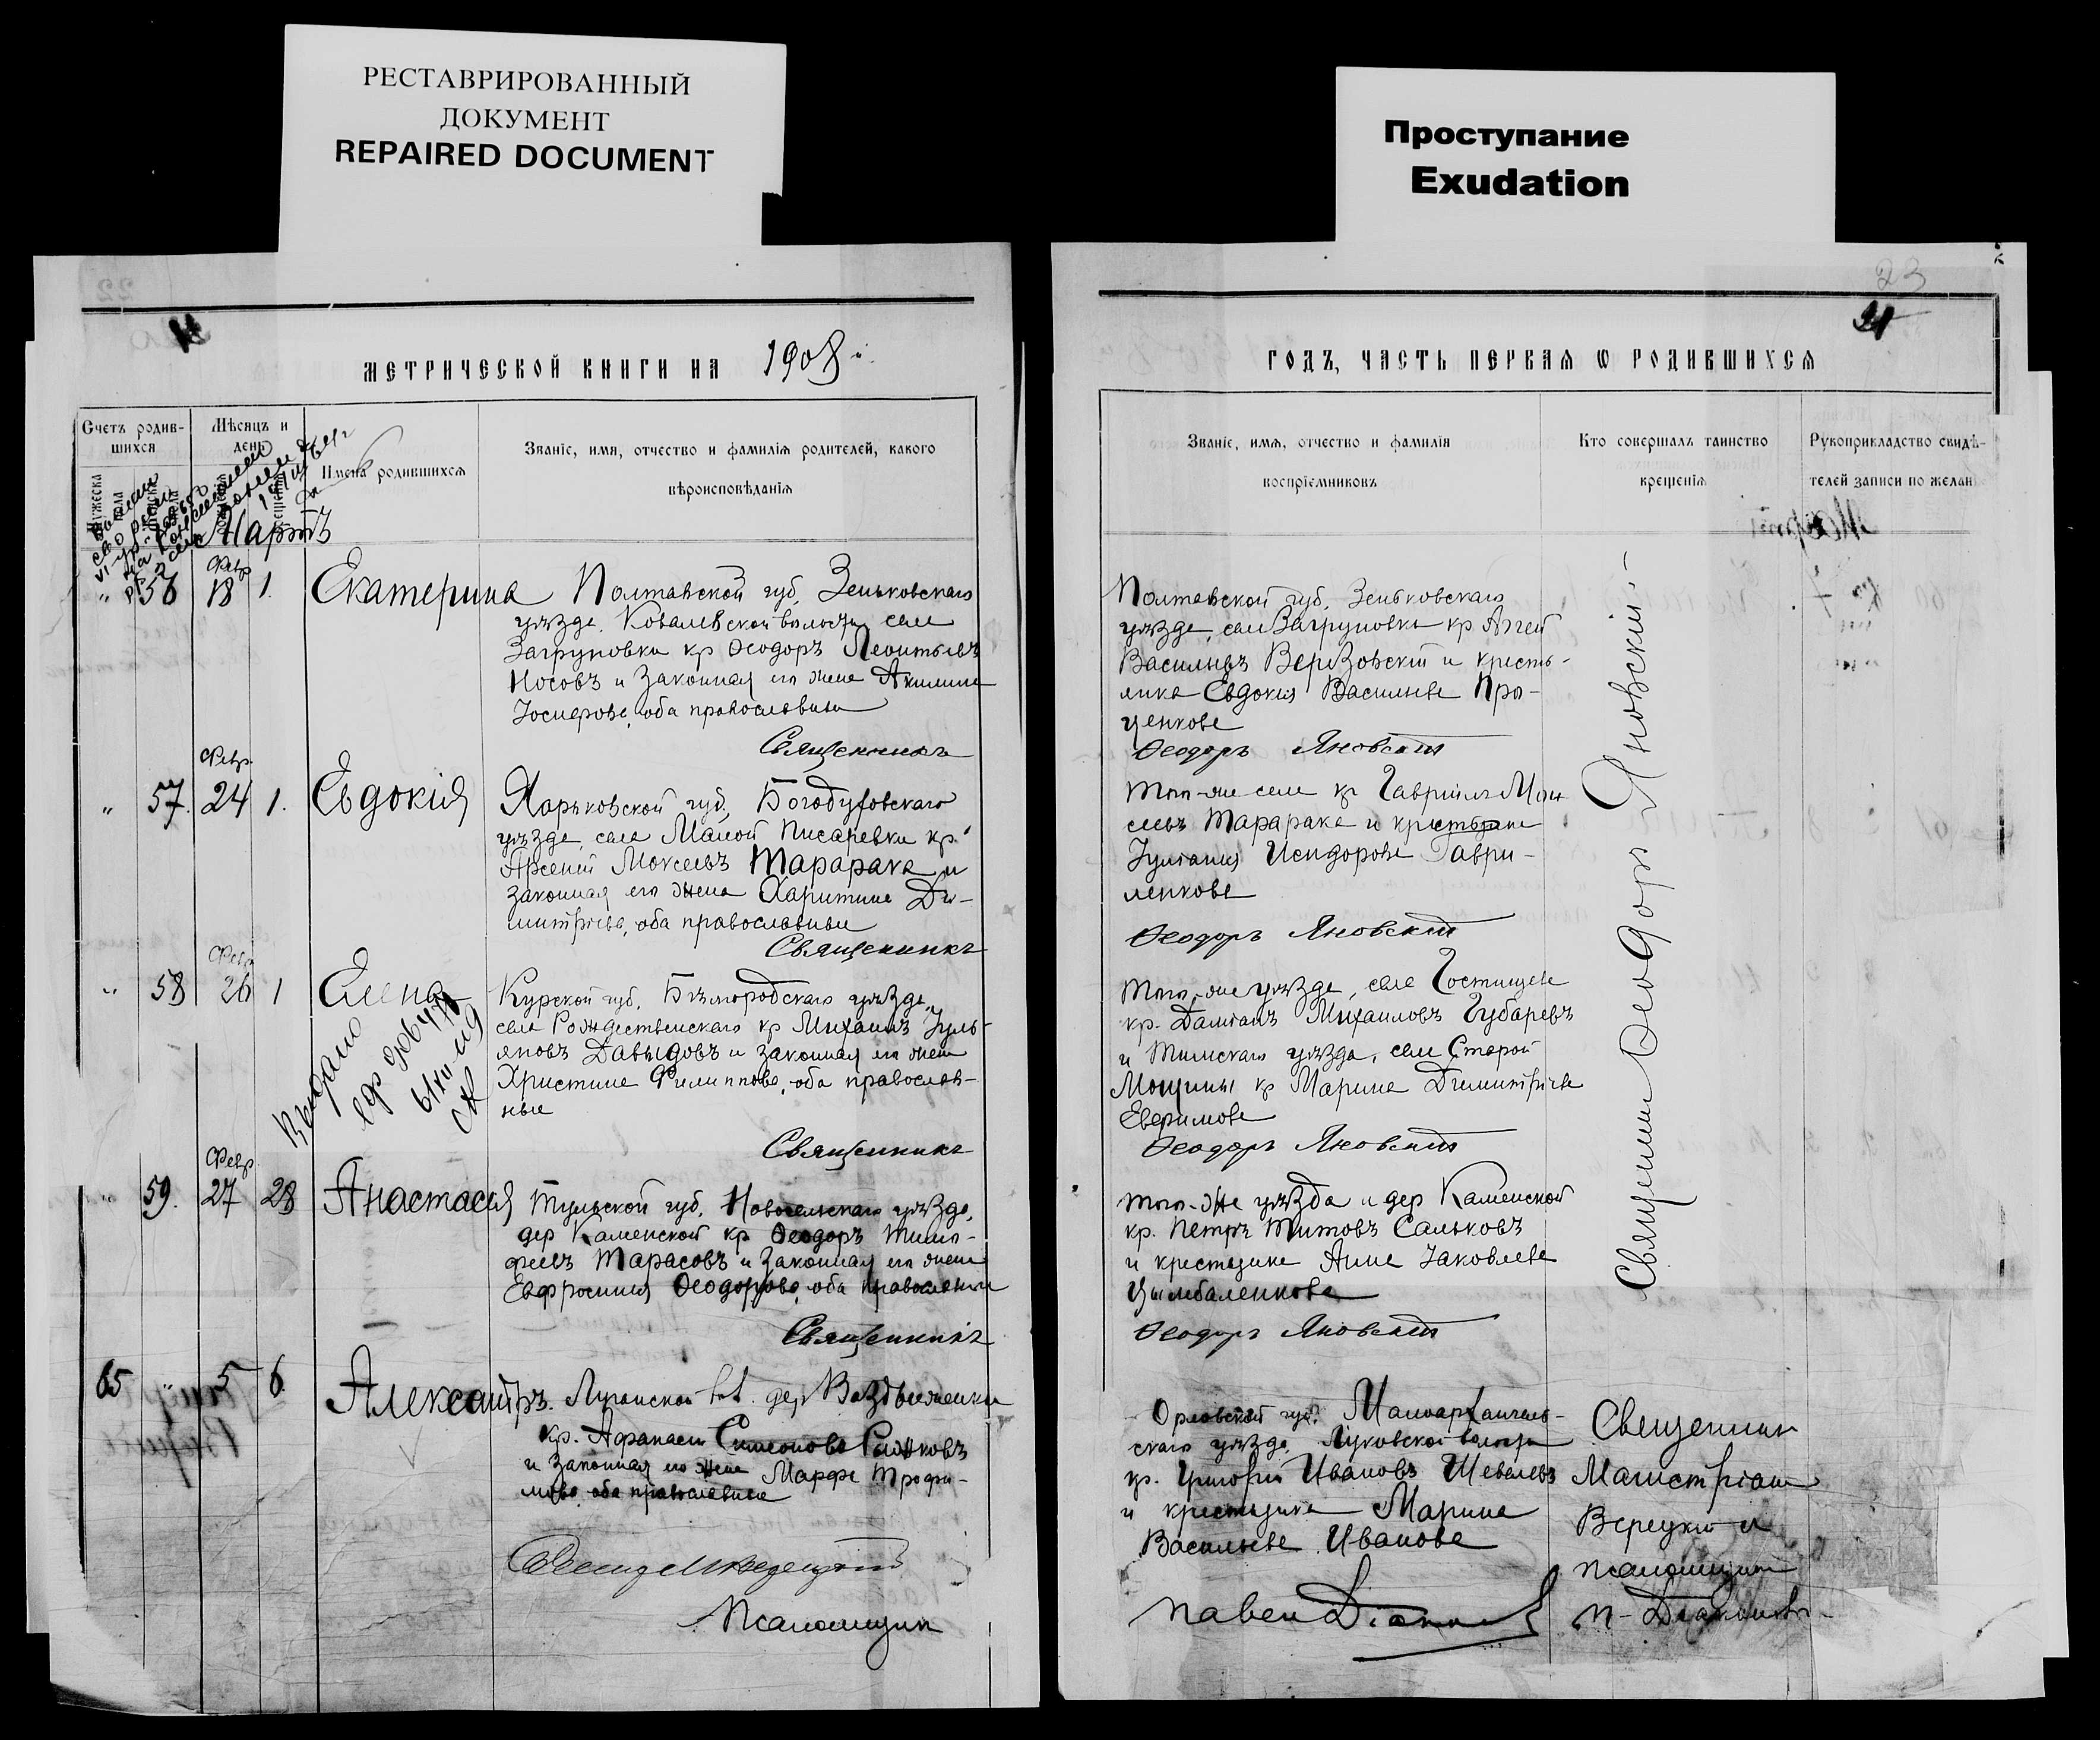 РЕСТАВРИРОВАННЫЙ
ДОКУМЕНТ
REPAIRED DOCUMENT
Проступание
Exudation
МЕТРИЧЕСКОЙ КНИГИ НА 1908 й.
Счетъ родив-
шихся
Мѣсяцъ и
день
Имена родившихся
Званіе, имя, отчество и фамилія родителей, какого
вѣроисповѣданія
Мартъ
Февр
" 56 18 1. Екатерина Полтавской губ. Зеньковскаго
уѣзда, Ковалевской волости села
Загруновки кр Ѳеодоръ Леонтьевъ
Носовъ и законная его жена Акилина
Іосифова, оба православны
Священникъ
Февр.
" 57. 24 1. Евдокія Харьковской губ. Богодуховскаго
уѣзда, села Малой Писаревки кр.
Арсеній Моисеевъ Тарарака и
законная его жена Харитина Ди-
митріева, оба православные
Священникъ
Февр
" 58 26 1 Елена Курской губ. Бѣлгородскаго уѣзда,
села Рождественскаго кр Михаилъ Іуль-
яновъ Давыдовъ и законная его жена
Христина Филиппова, оба православ-
ные
Выдано
Священникъ
Февр
" 59. 27 28 Анастасія Тульской губ. Новосильскаго уѣзда,
дер Каменской кр Ѳеодоръ Тимо-
феевъ Тарасовъ и законная его жена
Евфросинія Ѳеодорова, оба православные
Священникъ
65 " 5 6. Александръ. Луганской вол. дер Воздвиженки
кр. Афанасій Симеоновъ
и законная его жена Марфа Трофи-
мова оба православные
Псаломщик
23
21
ГОДЪ, ЧАСТЬ ПЕРВАЯ Ѡ РОДИВШИХСЯ
Званіе, имя, отчество и фамилія
воспріемниковъ
Кто совершалъ таинство
крещенія
Рукоприкладство свидѣ-
телей записи по желан
Полтавской губ. Зеньковскаго
уѣзда, села Загруновки кр. Аггей
Васильевъ Березовскій и кресть-
янка Евдокія Васильева Про-
ценкова
Ѳеодоръ Яновскій
Того-же села кр Гавріилъ Мои
сеевъ Тарарака и крестьянка
Іуліанія Исидорова Гаври-
ленкова
Ѳеодоръ Яновскій
Того-же уѣзда, села Гостищева
кр. Даміанъ Михаиловъ Губаревъ
и Тимскаго уѣзда, села Старой
кр Марина Димитріева
Ефимова
Ѳеодоръ Яновскій
Того-же уѣзда и дер Каменской
кр. Петръ Титовъ Сальковъ
и крестьянка Анна Іаковлева
Цымбаленкова
Ѳеодоръ Яновскій
Священникъ Ѳеодоръ Яновскій
Орловской губ. Малоархангель-
скаго уѣзда, волости
кр. Григорій Ивановъ Шевелевъ
и крестьянка Марина
Васильева Иванова
Павел Діаконов
Священник
Верецкій и
псаломщик
П. Діаконовъ